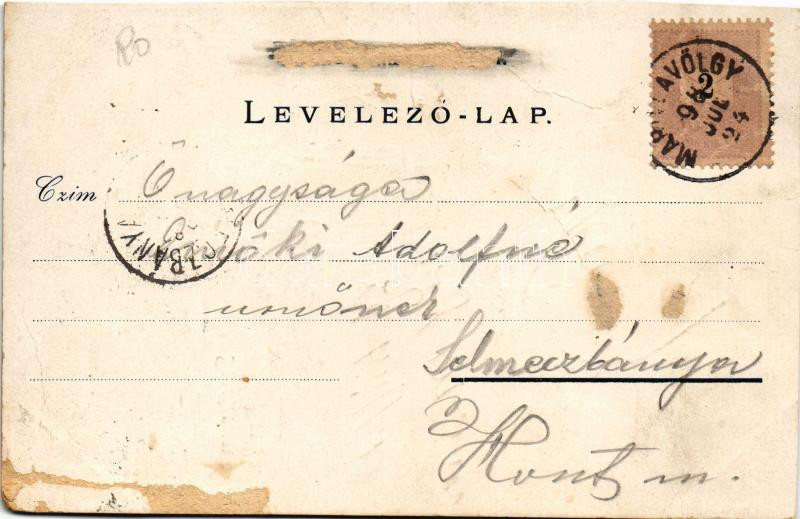 Ro
LEVELEZŐ-LAP.
2
MARILLAVÖLGY
98 JUL 24
Czim
Őnagysága
Adolfné
úrnőnek
Selmeczbánya
Hont m.